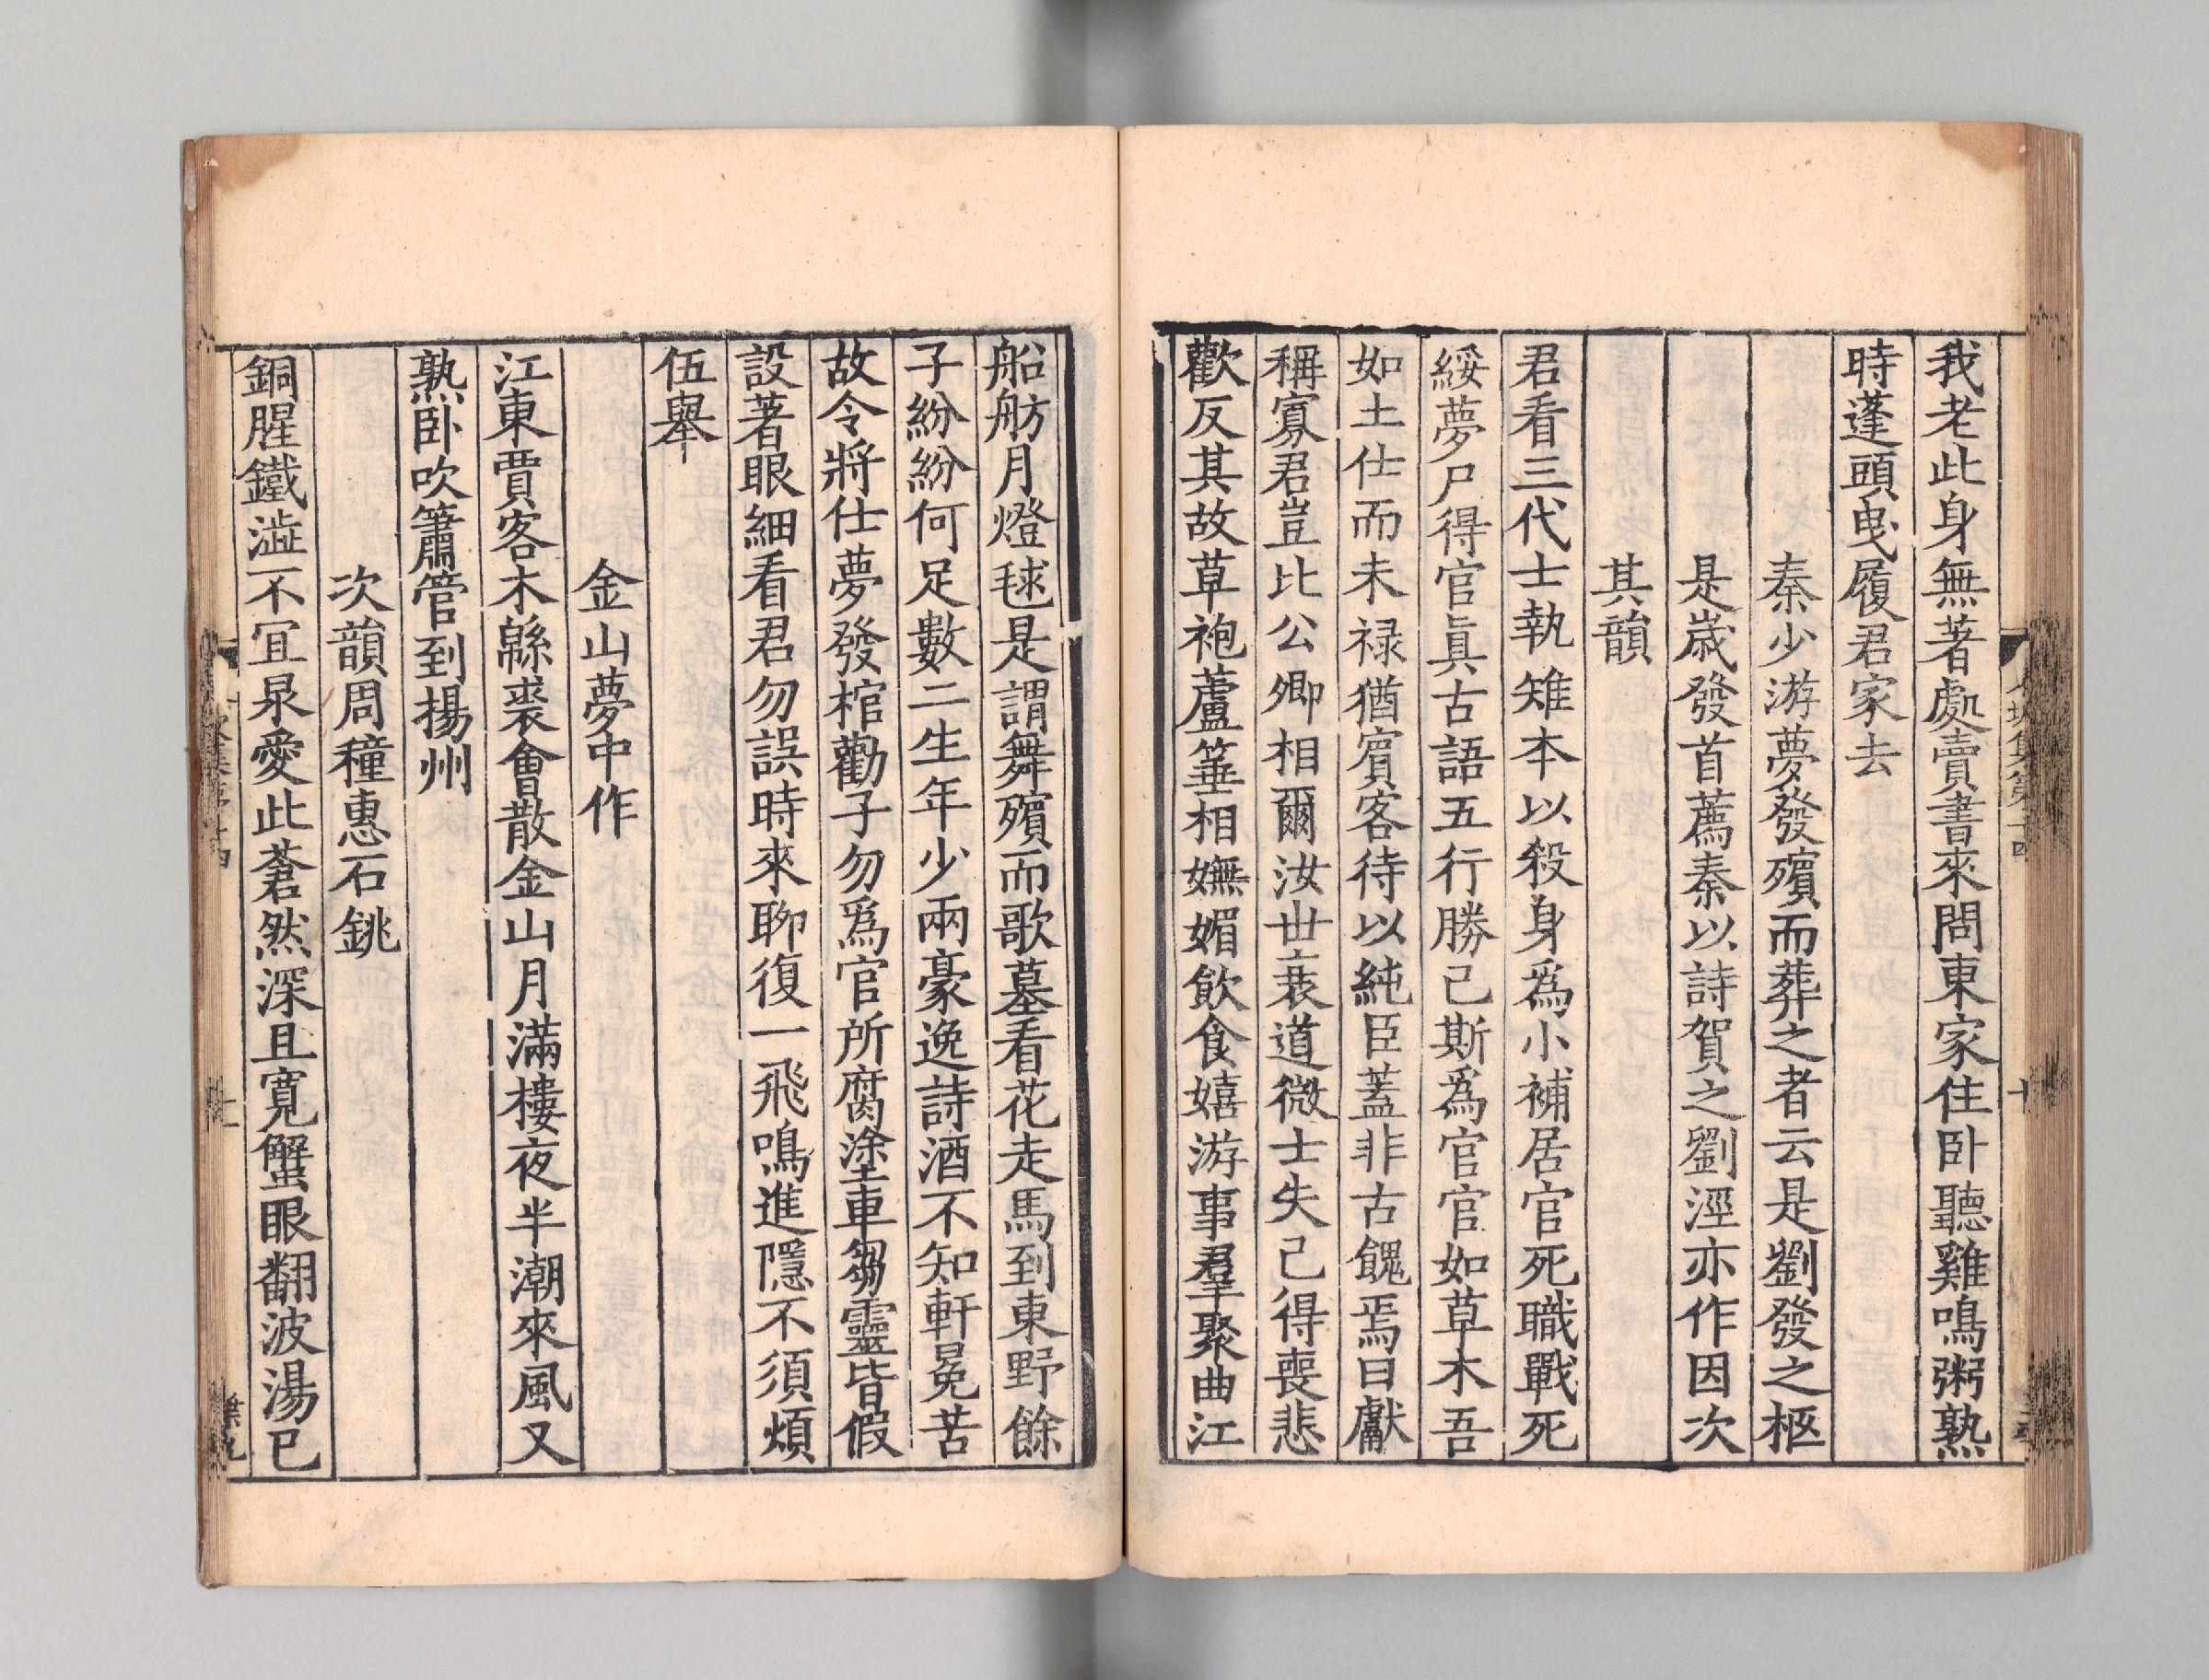 我老此身無著處賣書來問東家住卧聽雞鳴粥熟
時蓬頭曳履君家去
秦少游夢發殯而葬之者云是劉發之柩
是歳發首薦秦以詩賀之劉涇亦作因次
其韻
君看三代士執雉本以殺身爲小補居官死職戰死
綏夢尸得官眞古語五行勝己斯爲官官如草木吾
如土仕而未禄猶賔客待以純臣蓋非古餽焉曰獻
稱寡君豈比公卿相爾汝世衰道微士失己得喪悲
歡反其故草袍蘆箠相嫵媚飲食嬉游事羣聚曲江
船舫月燈毬是謂舞殯而歌墓看花走馬到東野餘
子紛紛何足數二生年少兩豪逸詩酒不知軒冕苦
故令將仕夢發棺勸子勿爲官所腐塗車芻靈皆假
設著眼細看君勿誤時來聊復一飛鳴進隱不須煩
伍舉
金山夢中作
江東賈客木緜裘會散金山月滿樓夜半潮來風又
熟卧吹簫管到揚州
次韻周穜惠石銚
銅腥鐵澁不宜泉愛此蒼然深且寬蟹眼翻波湯已